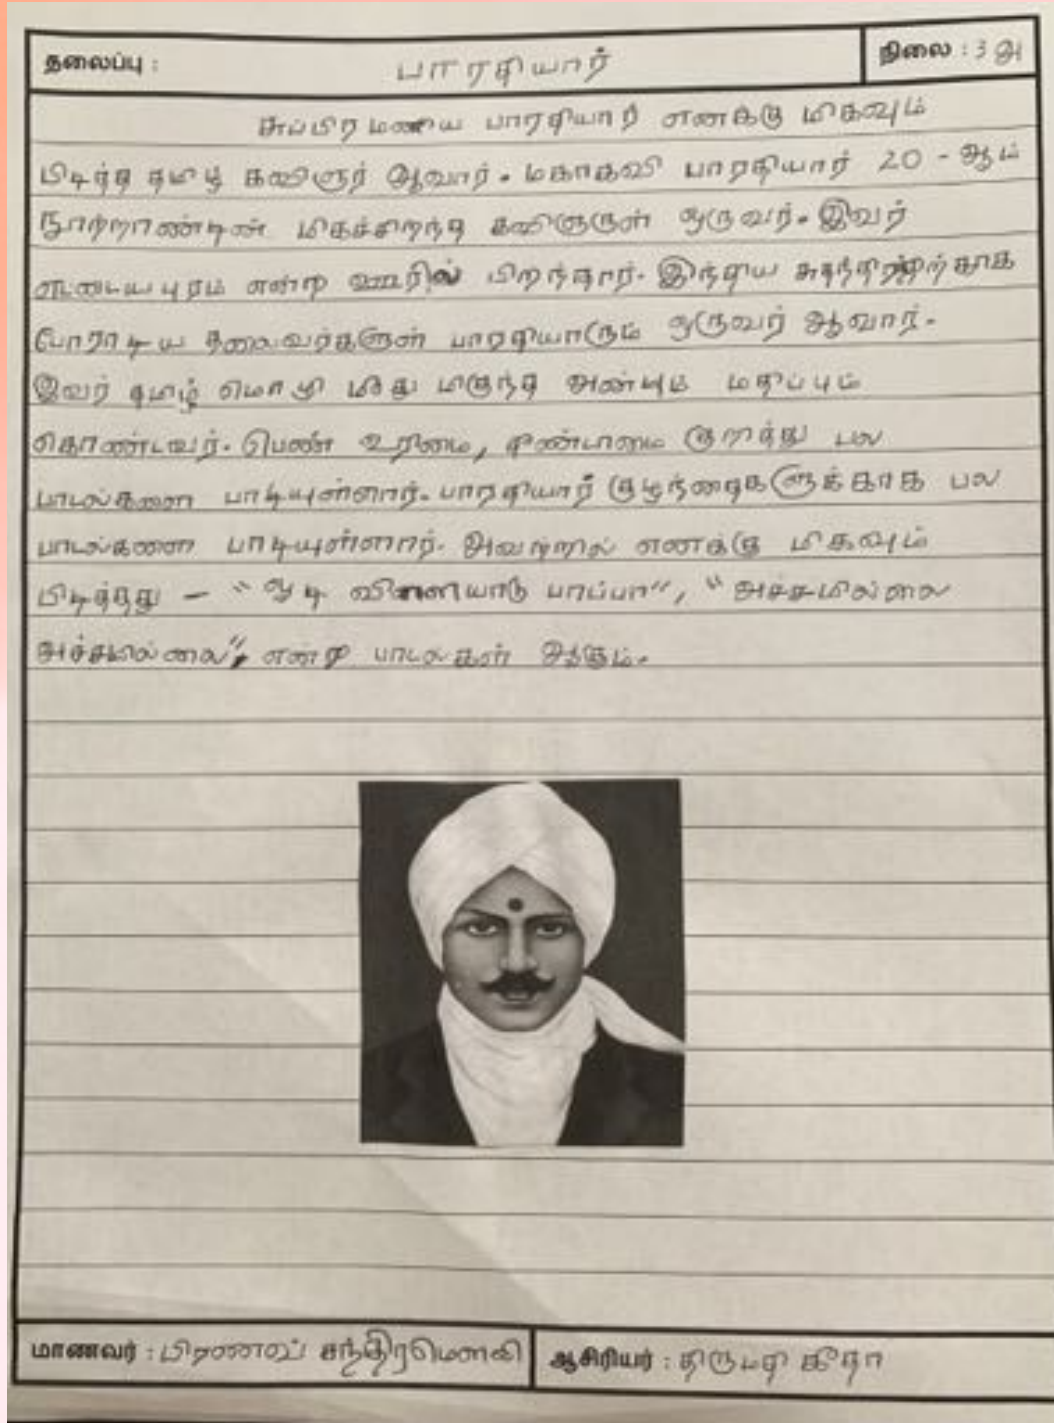 தலைப்பு : பாரதியார் நிலை : 3 அ
சுப்பிரமணிய பாரதியார் எனக்கு மிகவும்
பிடித்த தமிழ் கவிஞர் ஆவார். மகாகவி பாரதியார் 20 - ஆம்
நூற்றாண்டின் மிகச்சிறந்த கவிஞருள் ஒருவர். இவர்
எட்டையபுரம் என்ற ஊரில் பிறந்தார். இந்திய சுதந்திரத்திற்காக
போராடிய தலைவர்களுள் பாரதியாரும் ஒருவர் ஆவார்.
இவர் தமிழ் மொழி மீது மிகுந்த அன்பும் மதிப்பும்
கொண்டவர். பெண் உரிமை, தீண்டாமை குறித்து பல
பாடல்களை பாடியுள்ளார். பாரதியார் குழந்தைகளுக்காக பல
பாடல்களை பாடியுள்ளார். அவற்றில் எனக்கு மிகவும்
பிடித்தது - "ஓடி விளையாடு பாப்பா", "அச்சமில்லை
அச்சமில்லை", என்ற பாடல்கள் ஆகும்.
மாணவர் : பிரணவ் சந்திரமௌலி ஆசிரியர் : திருமதி கீதா